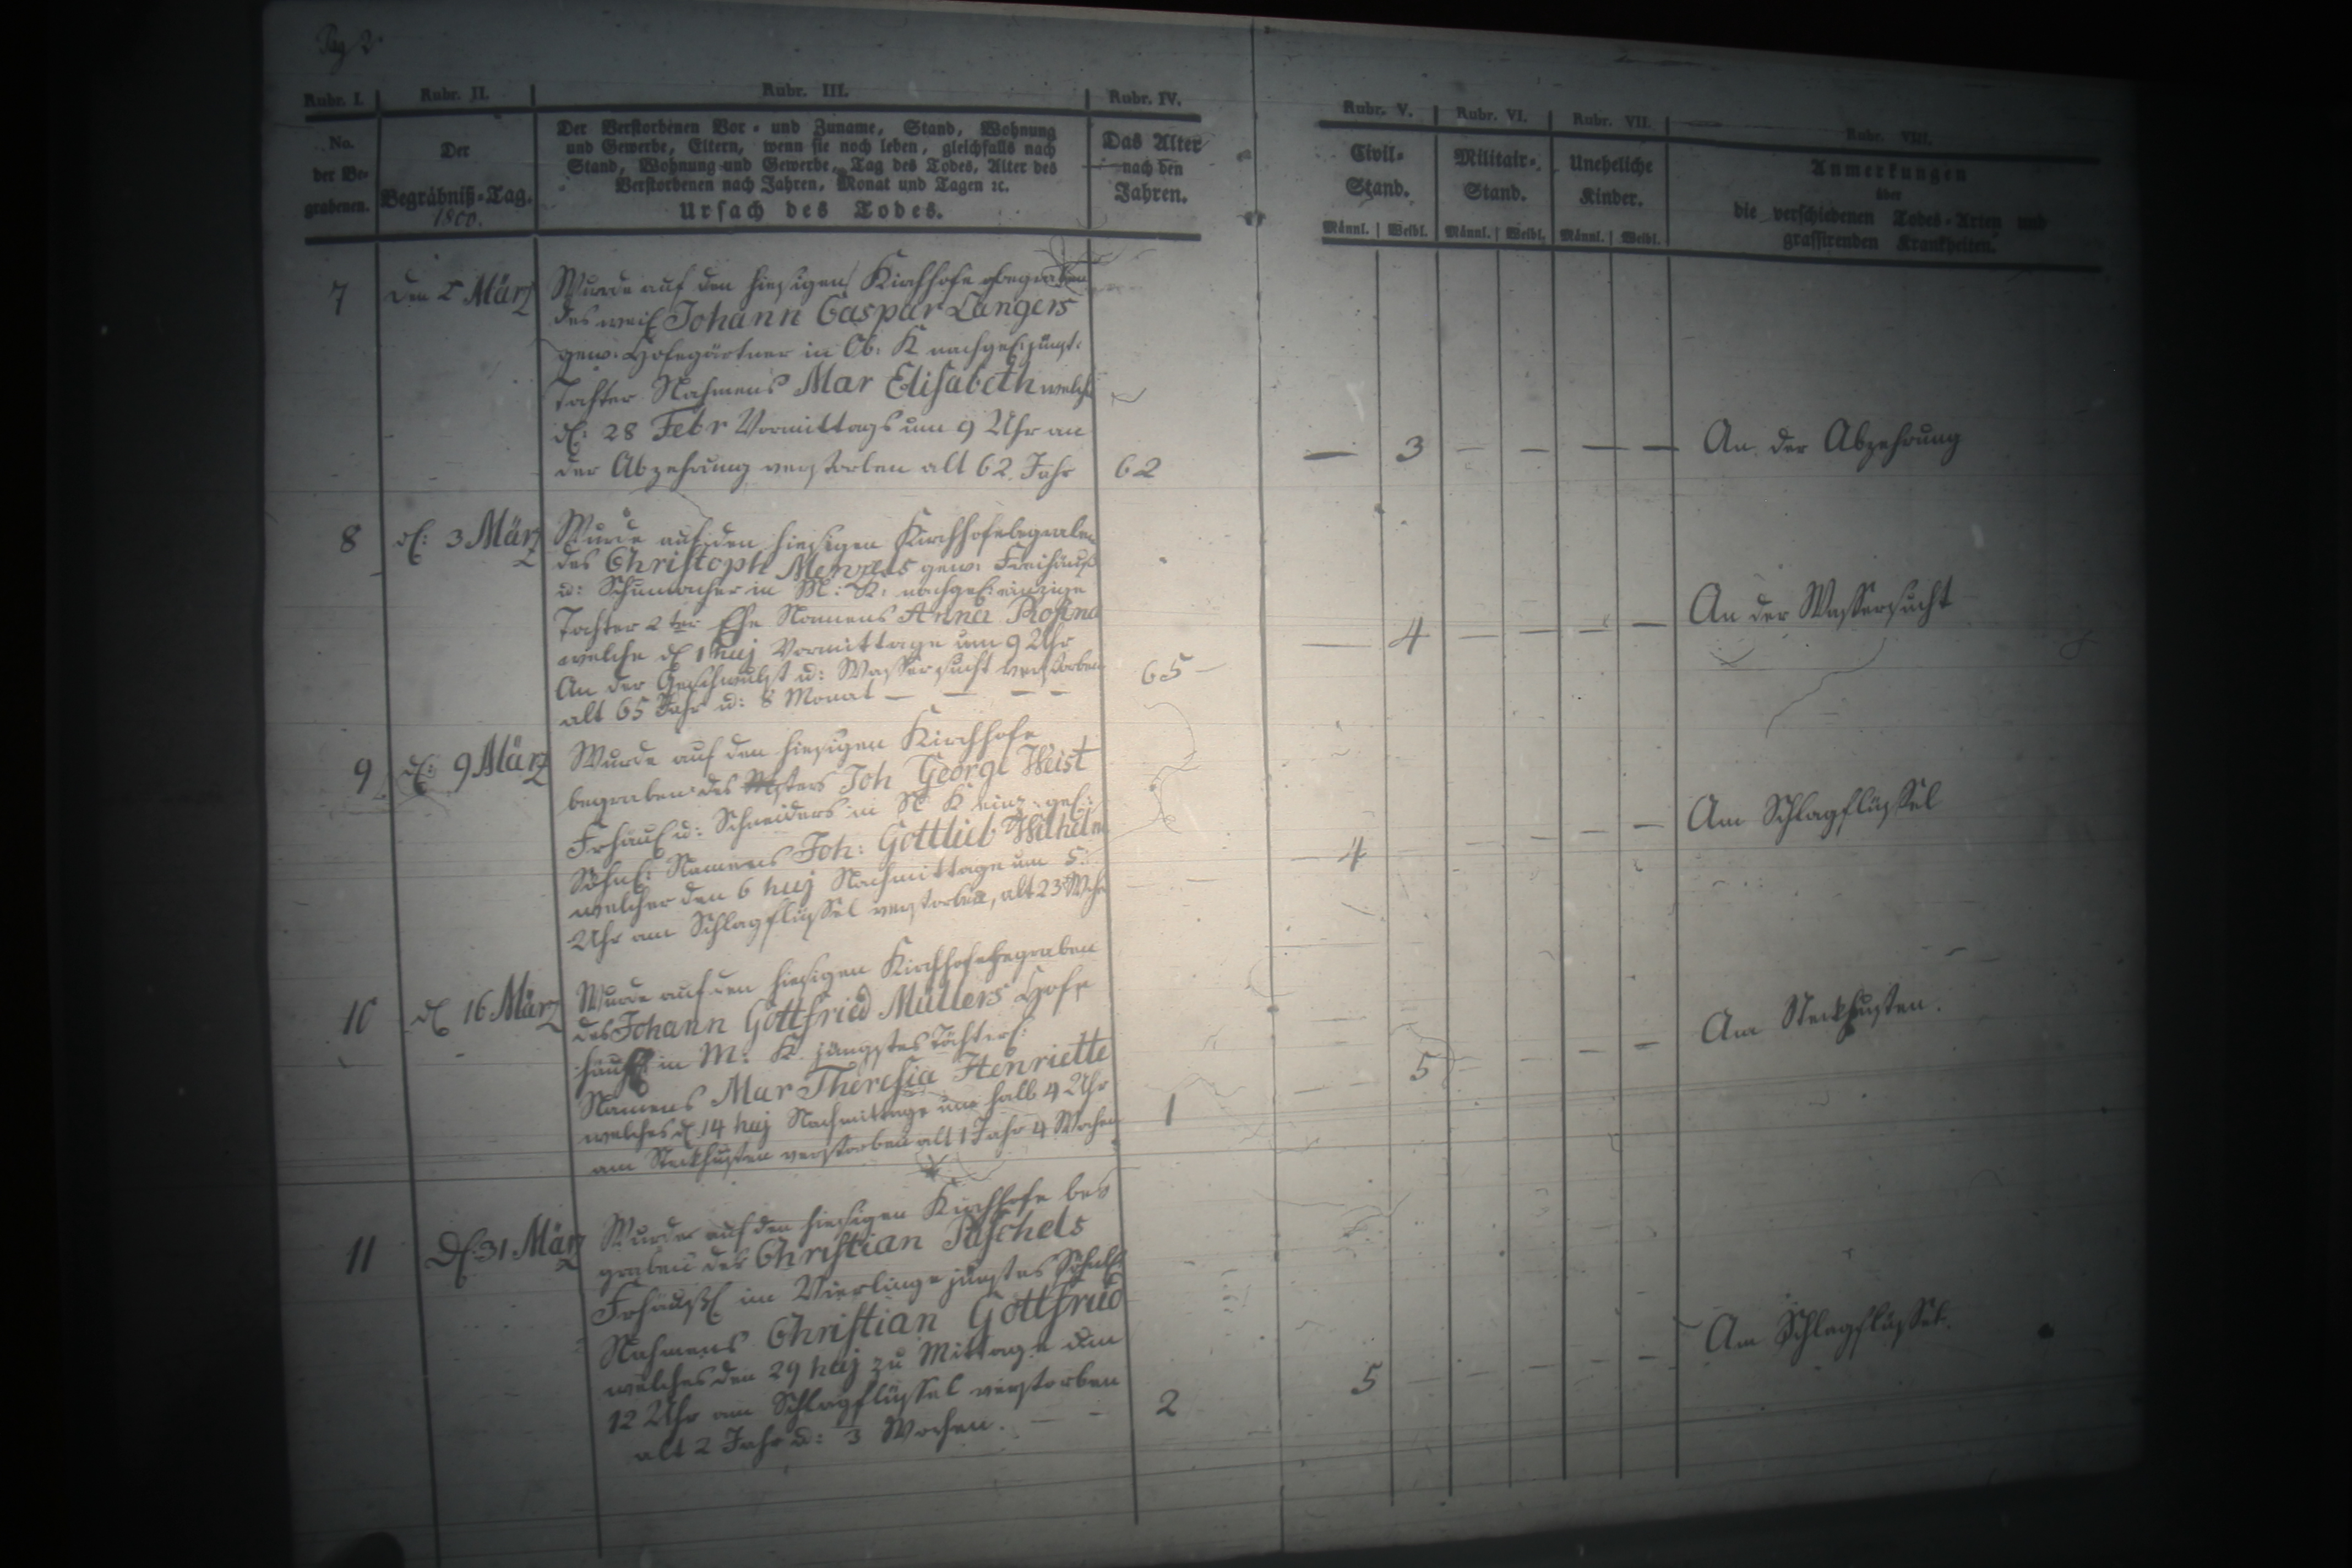 Pag 2
Rubr. I.
Rubr. II.
Rubr. III.
Rubr. IV.
Rubr. V.
Rubr. VI.
Rubr. VII.
Rubr. VIII.
No.
der Be-
grabenen.
Der
Begräbniß-Tag.
1800.
Der Verstorbenen Vor- und Zuname, Stand, Wohnung
und Gewerbe, Eltern, wenn sie noch leben, gleichfalls nach
Stand, Wohnung und Gewerbe, Tag des Todes, Alter des
Verstorbenen nach Jahren, Monat und Tagen ꝛc.
Ursach des Todes.
Das Alter
nach den
Jahren.
Civil-
Stand.
Männl. | Weibl.
Militair-
Stand.
Männl. | Weibl.
Uneheliche
Kinder.
Männl. | Weibl.
Anmerkungen
über
die verschiedenen Todes-Arten und
grassirenden Krankheiten.
7
den 2 März
Wurde auf den hiesigen Kirchhofe begraben
des weil Johann Caspar Langers
gew: Hofegärtner in Ob: K nachgel: jüngst:
Tochter Nahmens Mar Elisabeth welche
d: 28 Febr Vormittags um 9 Uhr an
der Abzehrung verstorben alt 62 Jahr
62
— 3 — — — —
An der Abzehrung
8
d: 3 März
Wurde auf den hiesigen Kirchhofe begraben
des Christoph gew: Freihäusl
u: Schumacher in M: K: nachgel: einzige
Tochter 2ter Ehe Namens Anna Rosina
welche d 1 huj Vormittage um 9 Uhr
An der Geschwulst u: Wassersucht verstorben
alt 65 Jahr u: 8 Monat — — — —
65 —
— 4 — — — —
An der Wassersucht
9
d: 9 März
Wurde auf den hiesigen Kirchhofe
begraben des Joh George Weist
Frhäusl u: Schneiders in N K einz: gel:
Söhnl: Namens Joh: Gottlieb Wilhelm
welcher den 6 huj Nachmittage um 5
Uhr am Schlagflüssel verstorben, alt 23 Wch
— 4 — — — —
Am Schlagflüssel
10
d 16 März
Wurde auf den hiesigen Kirchhofe begraben
des Johann Gottfried Müllers Hofe
häusl in M: K. jüngstes Töchterl:
Namens Mar Theresia Henriette
welches d 14 huj Nachmittage um halb 4 Uhr
am Steckhusten verstorben alt 1 Jahr 4 Wochen
1
— 5 — — — —
Am Steckhusten.
11
D: 31 März
Wurde auf den hiesigen Kirchhofe be
graben des Christian Päschels
Frhäusl im Vierlinge jüngstes Söhnl
Nahmens Christian Gottfried
welches den 29 huj zu Mittage um
12 Uhr am Schlagflüssel verstorben
alt 2 Jahr u: 3 Wochen. — —
2
5 — — — — —
Am Schlagflüssel.